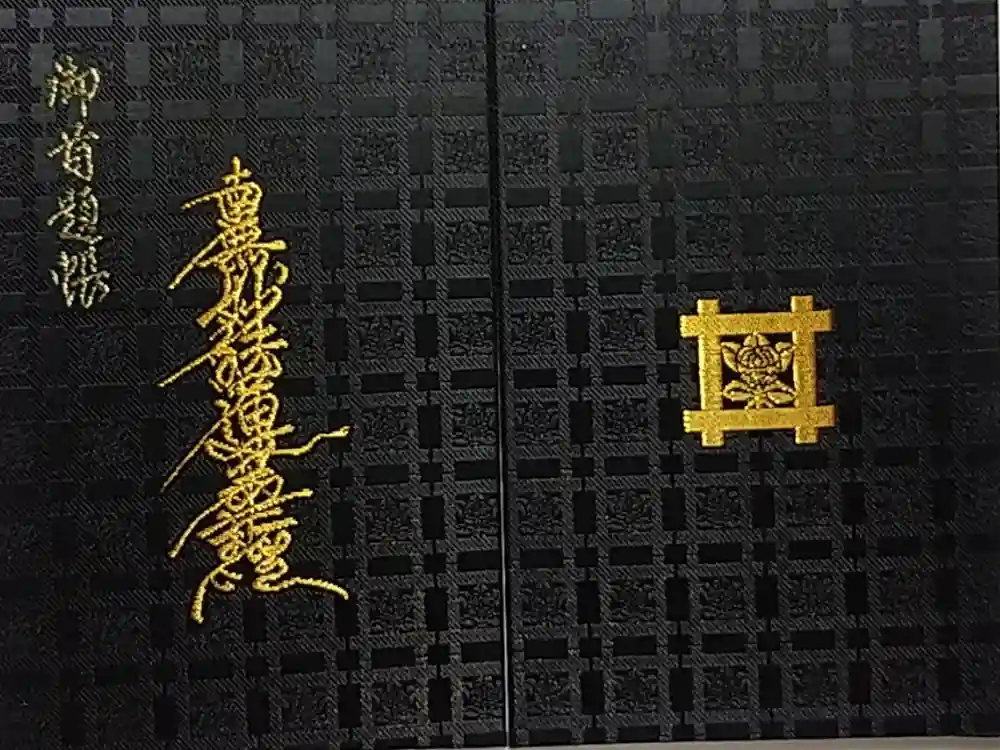 御首題帳
南無妙法蓮華経